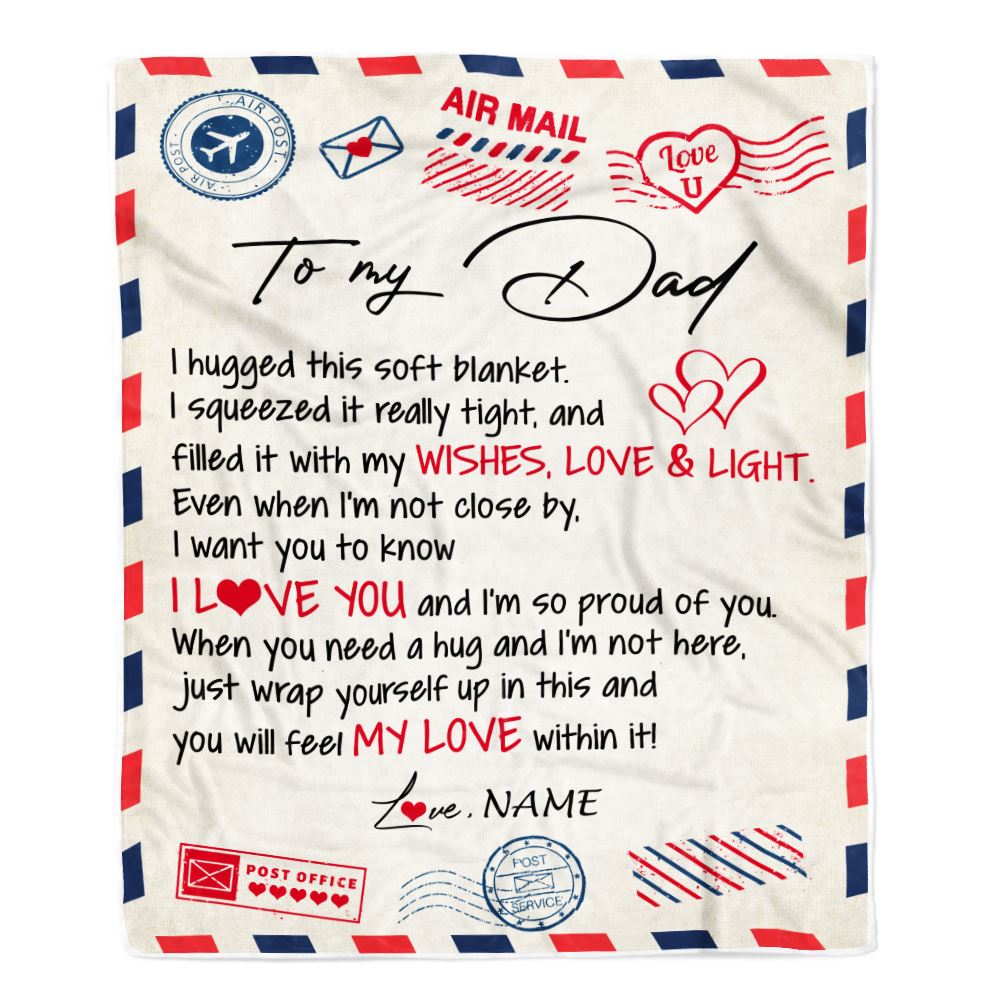 AIR POST
AIR POST
AIR POST
AIR MAIL
Love
U
To my Dad
I hugged this soft blanket.
I squeezed it really tight, and
filled it with my WISHES, LOVE & LIGHT.
Even when I'm not close by,
I want you to know
I L❤VE YOU and I'm so proud of you.
When you need a hug and I'm not here,
just wrap yourself up in this and
you will feel MY LOVE within it!
L❤ve, NAME
POST OFFICE
POST
SERVICE